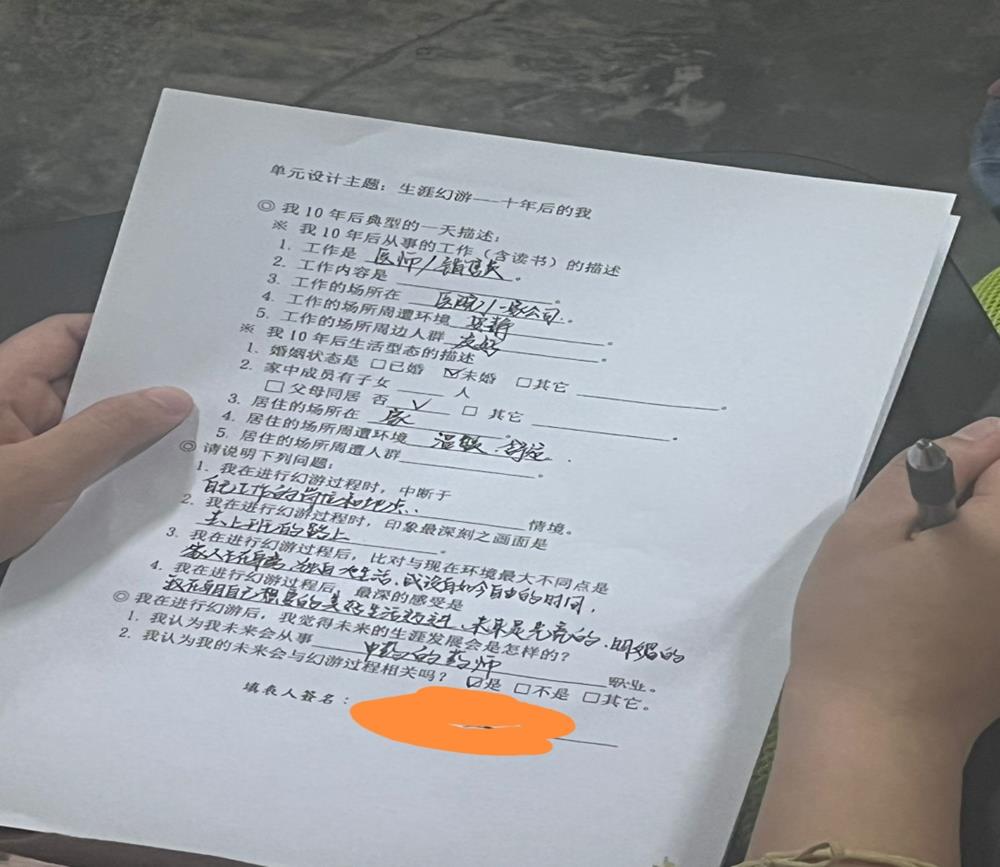 单元设计主题：生涯幻游---十年后的我
◎ 我10年后典型的一天描述：
※ 我10年后从事的工作（含读书）的描述
1. 工作是 医师/销售长。
2. 工作内容是 。
3. 工作的场所在 医院/一家公司。
4. 工作的场所周遭环境 安静 。
5. 工作的场所周边人群 友好 。
※ 我10年后生活型态的描述
1. 婚姻状态是 □已婚 ☑未婚 □其它 。
2. 家中成员有子女 人
□ 父母同居 否 √ □ 其它 。
3. 居住的场所在 家
4. 居住的场所周遭环境 温暖
5. 居住的场所周遭人群 。
◎ 请说明下列问题：
1. 我在进行幻游过程时，中断于
自己工作的岗位和地点 情境。
2. 我在进行幻游过程时，印象最深刻之画面是
去上班的路上 。
3. 我在进行幻游过程后，比对与现在环境最大不同点是
家人不在身旁，独自一人生活，或没有如今自由的时间，
4. 我在进行幻游过程后，最深的感受是
我在朝自己想要的美好生活迈进、未来是光亮的、明媚的
◎ 我在进行幻游后，我觉得未来的生涯发展会是怎样的？
1. 我认为我未来会从事 中药的药师 职业。
2. 我认为我的未来会与幻游过程相关吗？ ☑是 □不是 □其它。
填表人签名：